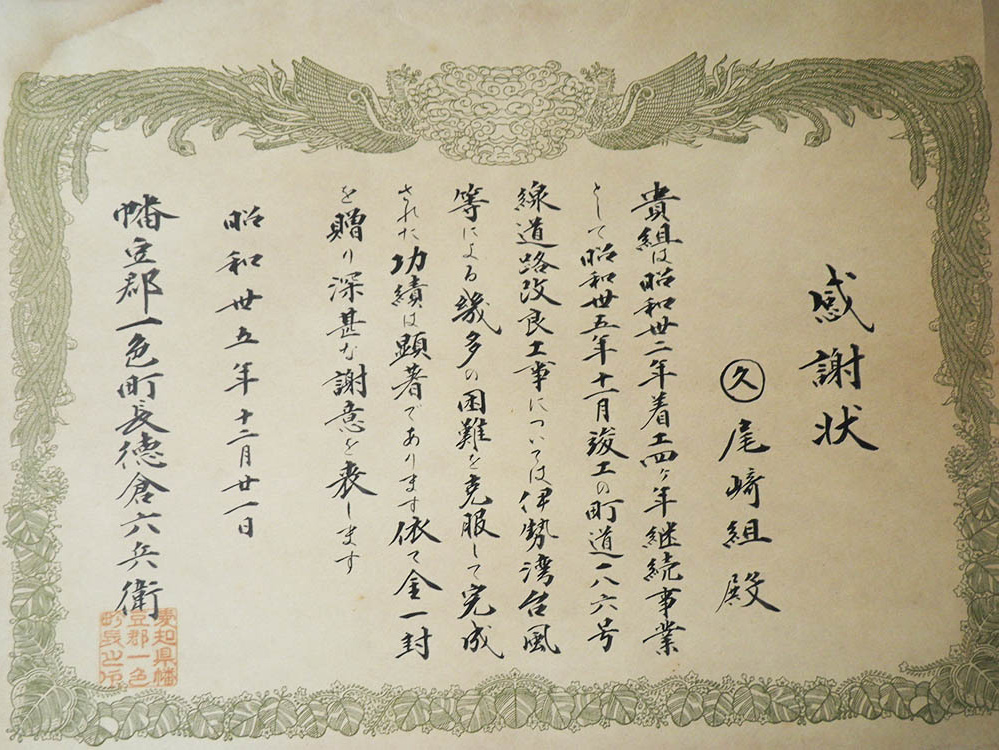 感謝状
㊈久 尾崎組殿
貴組は昭和卅二年着工四ヶ年継続事業
として昭和卅五年十一月竣工の町道一八六号
線道路改良工事については伊勢湾台風
等による幾多の困難を克服して完成
された功績は顕著であります依て金一封
を贈り深甚な謝意を表します
昭和卅五年十二月廿一日
幡豆郡一色町長徳倉六兵衛
愛知県幡
豆郡一色
町長之印